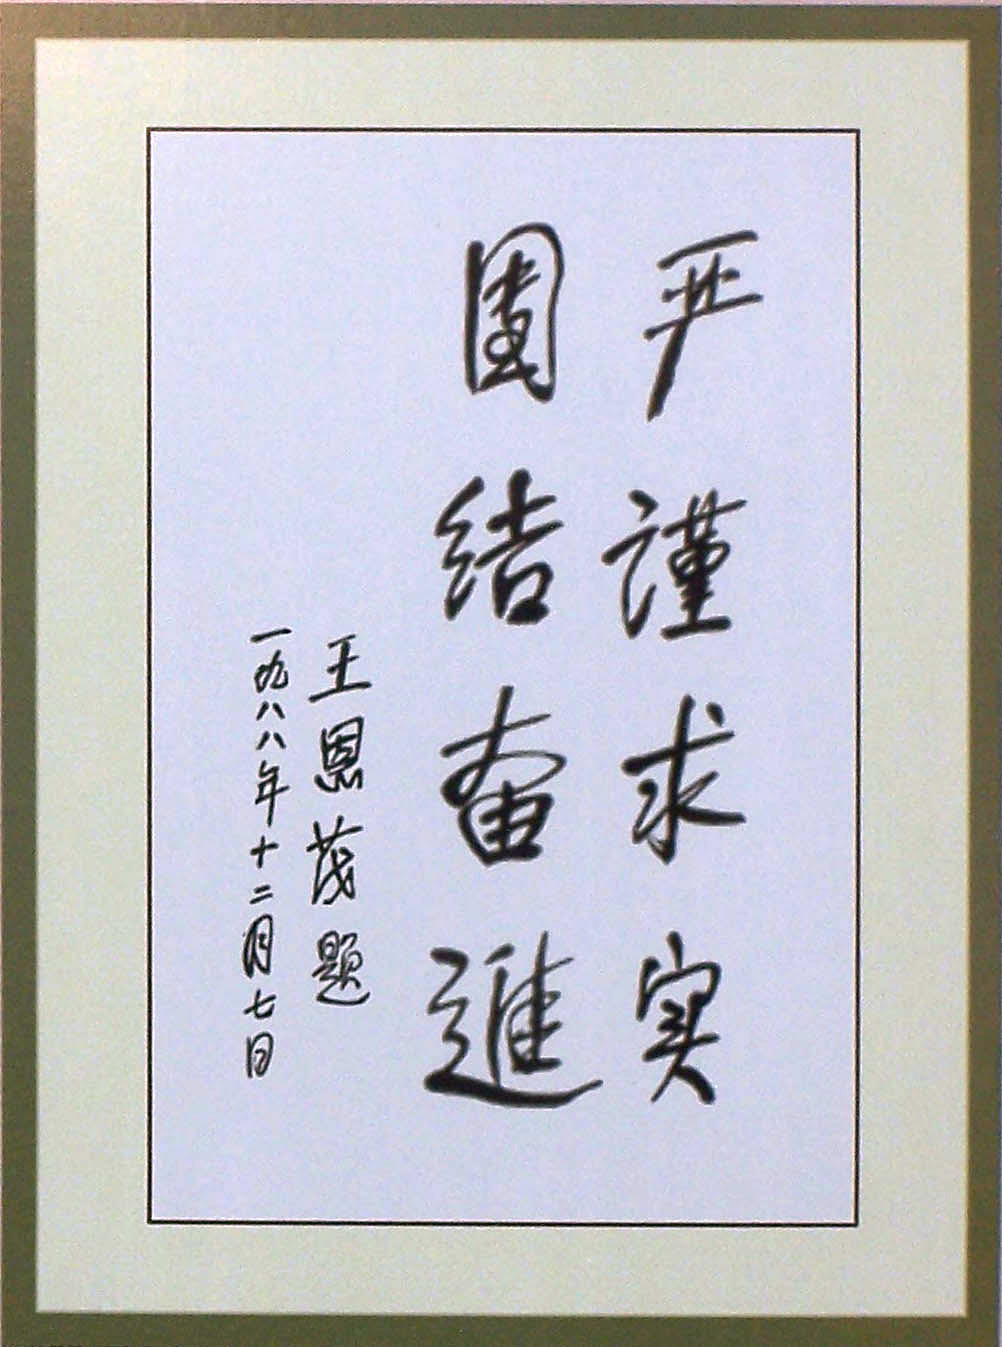 严謹求实
団结奋進
王恩茂题
一九八八年十二月七日